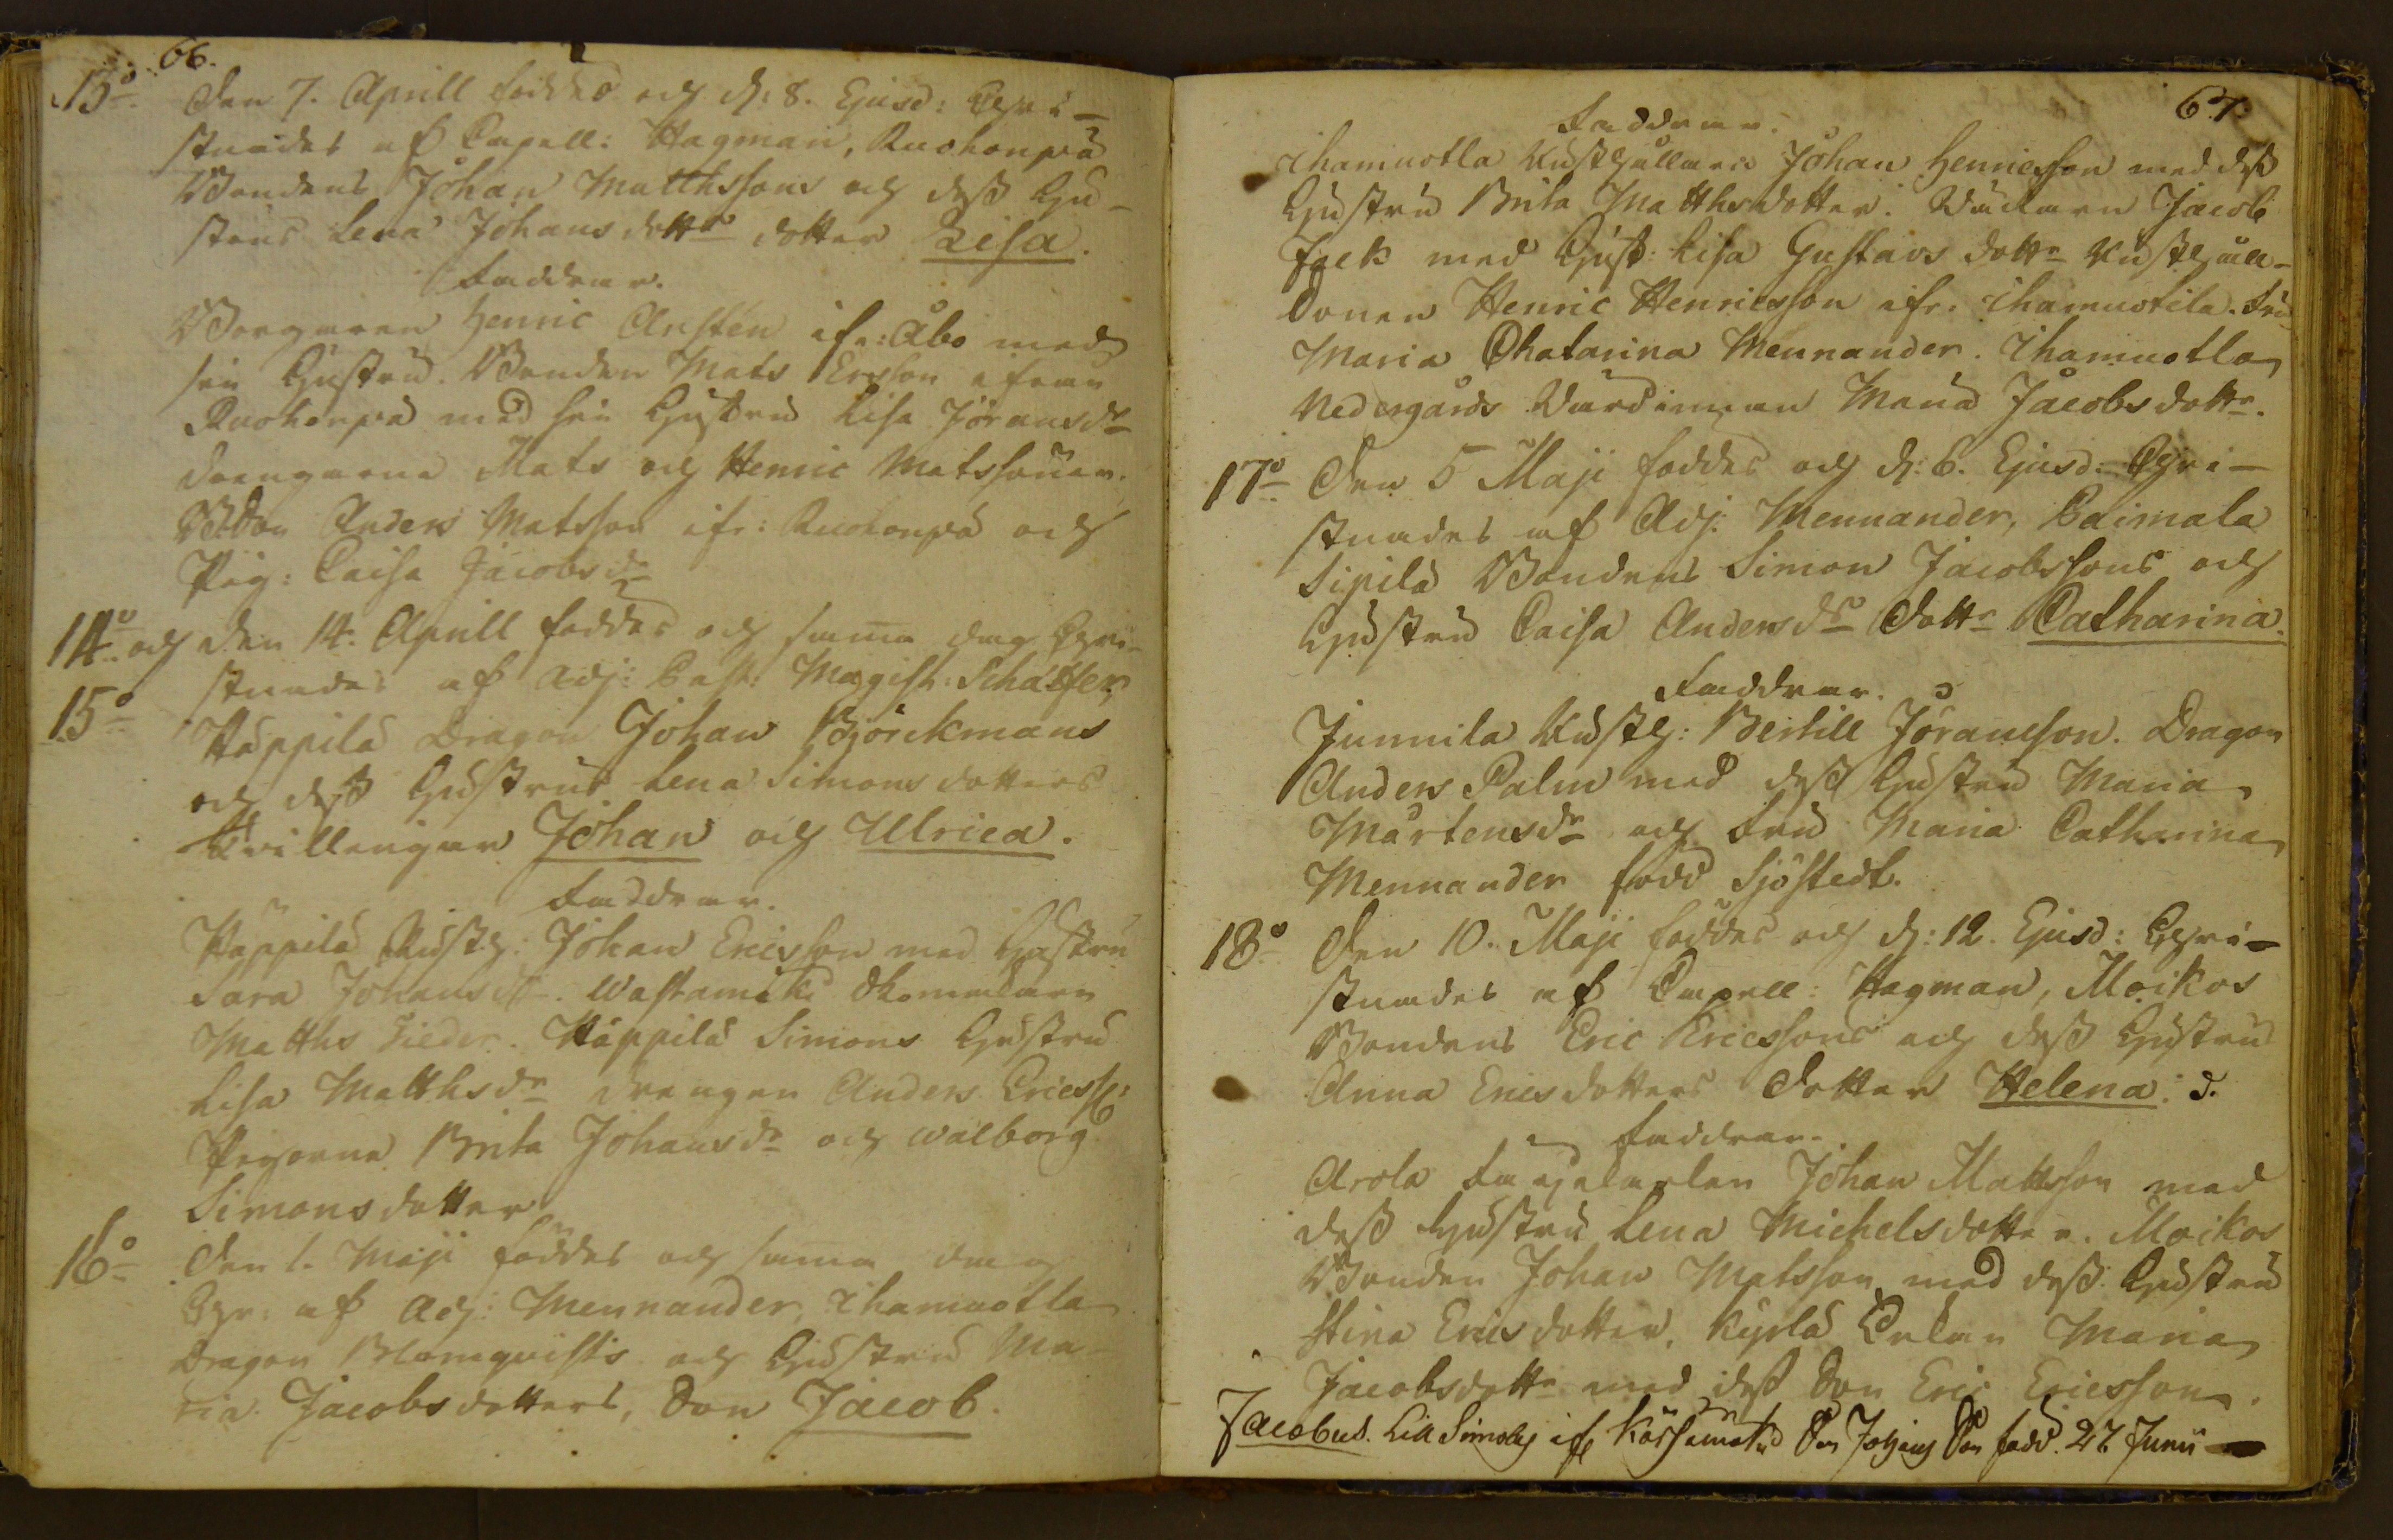 66.
13º Den 7. Aprill föddes och d: 8. Ejusd: Chri-
stnades af Capell: Hagman, Ruohonpä
Bondens Johan Matthssons och dess hu-
strus Lena Johansdottr dotter Lisa.
Faddrar.
Borgaren Henric Arestén ifr: Åbo med
sin hustru. Bonden Mats Ersson ifrån
Ruohonpä med sin hustru Lisa Jöransdr
drengarne Mats och Henric Matssöner.
Anders Matsson ifr: Ruohonpä och
Pig: Caisa Jacobsdr
14º och den 14. Aprill föddes och samma dag Chri-
15º stnades af Adj: Past: Magist: Schalfer,
Häppilä Dragon Johan Björckmans
och dess hustrus Lena Simonsdotters
Tvillingar Johan och Ulrica.
Faddrar.
Häppilä Rusth: Johan Ericsson med hustru
Sara Johansdr. Wastamäki
Matths Lieder. Häppilä Simons hustru
Lisa Matthsdr drengen Anders Ericss:
Pigorna Brita Johansdr och Walborg
Simonsdotter
16º Den 1. Maji föddes och samma dag
Chr: af Adj: Mennander, Ihamuotla
Dragon Blomqvists och hustru Ma-
ria Jacobsdotters, Son Jacob.
67.
Faddrar.
Ihamuotla Rusthållaren Johan Henricsson med dess
hustru Brita Matthsdotter. Jacob
Fock med hust: Lisa Gustavsdottr Rusthåll-
sonen Henric Henricsson ifr: Ihamuotila. Fru
Maria Chatarina Mennander. Ihamuotla
Nedergårds Värdinnan Maria Jacobsdottr.
17º Den 5 Maji föddes och d: 6. Ejusd: Chri-
stnades af Adj: Mennander, Paimala
Sipilä Bondens Simon Jacobssons och
hustru Caisa Andersdr Dottr Catharina.
Faddrar.
Junnila Rusth: Bertill Jöransson. Dragon
Anders Palm med dess hustru Maria
Mårtensdr och Fru Maria Catharina
Mennander född Sjöstedt.
18º Den 10. Maji föddes och d: 12. Ejusd: Chri-
stnades af Capell: Hagman, Moikos
Bondens Eric Ericssons och dess hustru
Anna Ericsdotters Dotter Helena: d.
Faddrar.
Arola Johan Mattsson med
dess hustru Lena Michelsdotter. Moikos
Bonden Johan Matsson med dess hustru
Stina Ericsdotter. Kyrlä Enkan Maria
Jacobsdottr med dess Son Eric Ericsson.
Jacobus. Lill Simola ifr Son Johans Son född 27 Junii